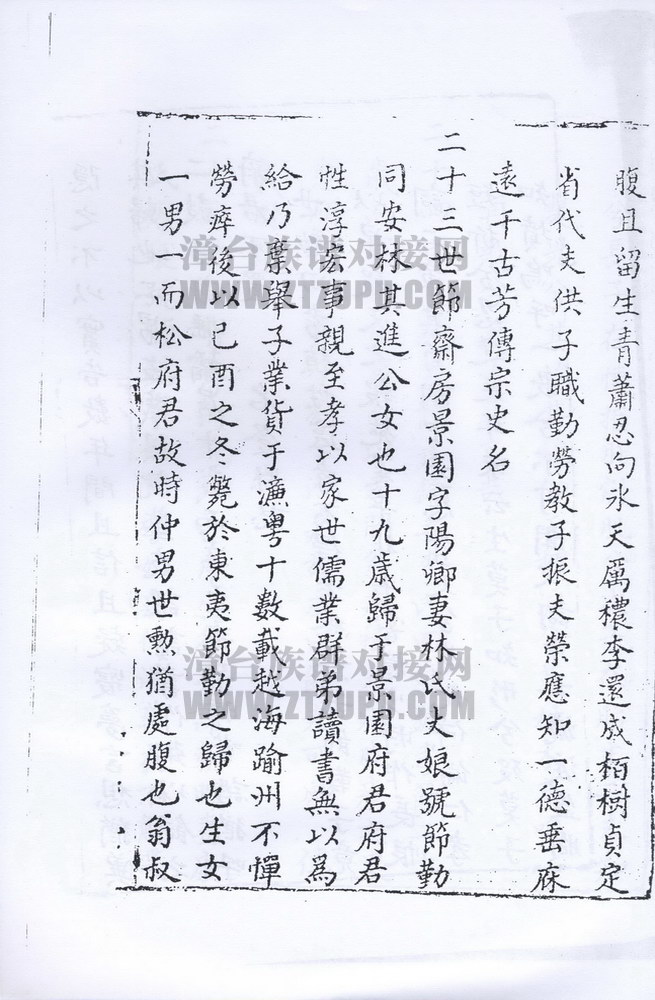 腹且留生青蕭忍向氷天厲穠李還成栢樹貞定
省代夫供子職勤勞教子振夫榮應知一德垂庥
遠千古芳傳宗史名
二十三世節齋房景園字陽卿妻林氏大娘號節勤
同安林其進公女也十九歲歸于景園府君府君
性淳宏事親至孝以家世儒業群弟讀書無以為
給乃棄舉子業貨于漁粵十數載越海踰州不憚
勞瘁後以己酉之冬斃於東夷節勤之歸也生女
一男一而松府君故時仲男世勲猶處腹也翁叔
漳台族谱对接网
WWW.ZTZUPU.COM
漳台族谱对接网
WWW.ZTZUPU.COM